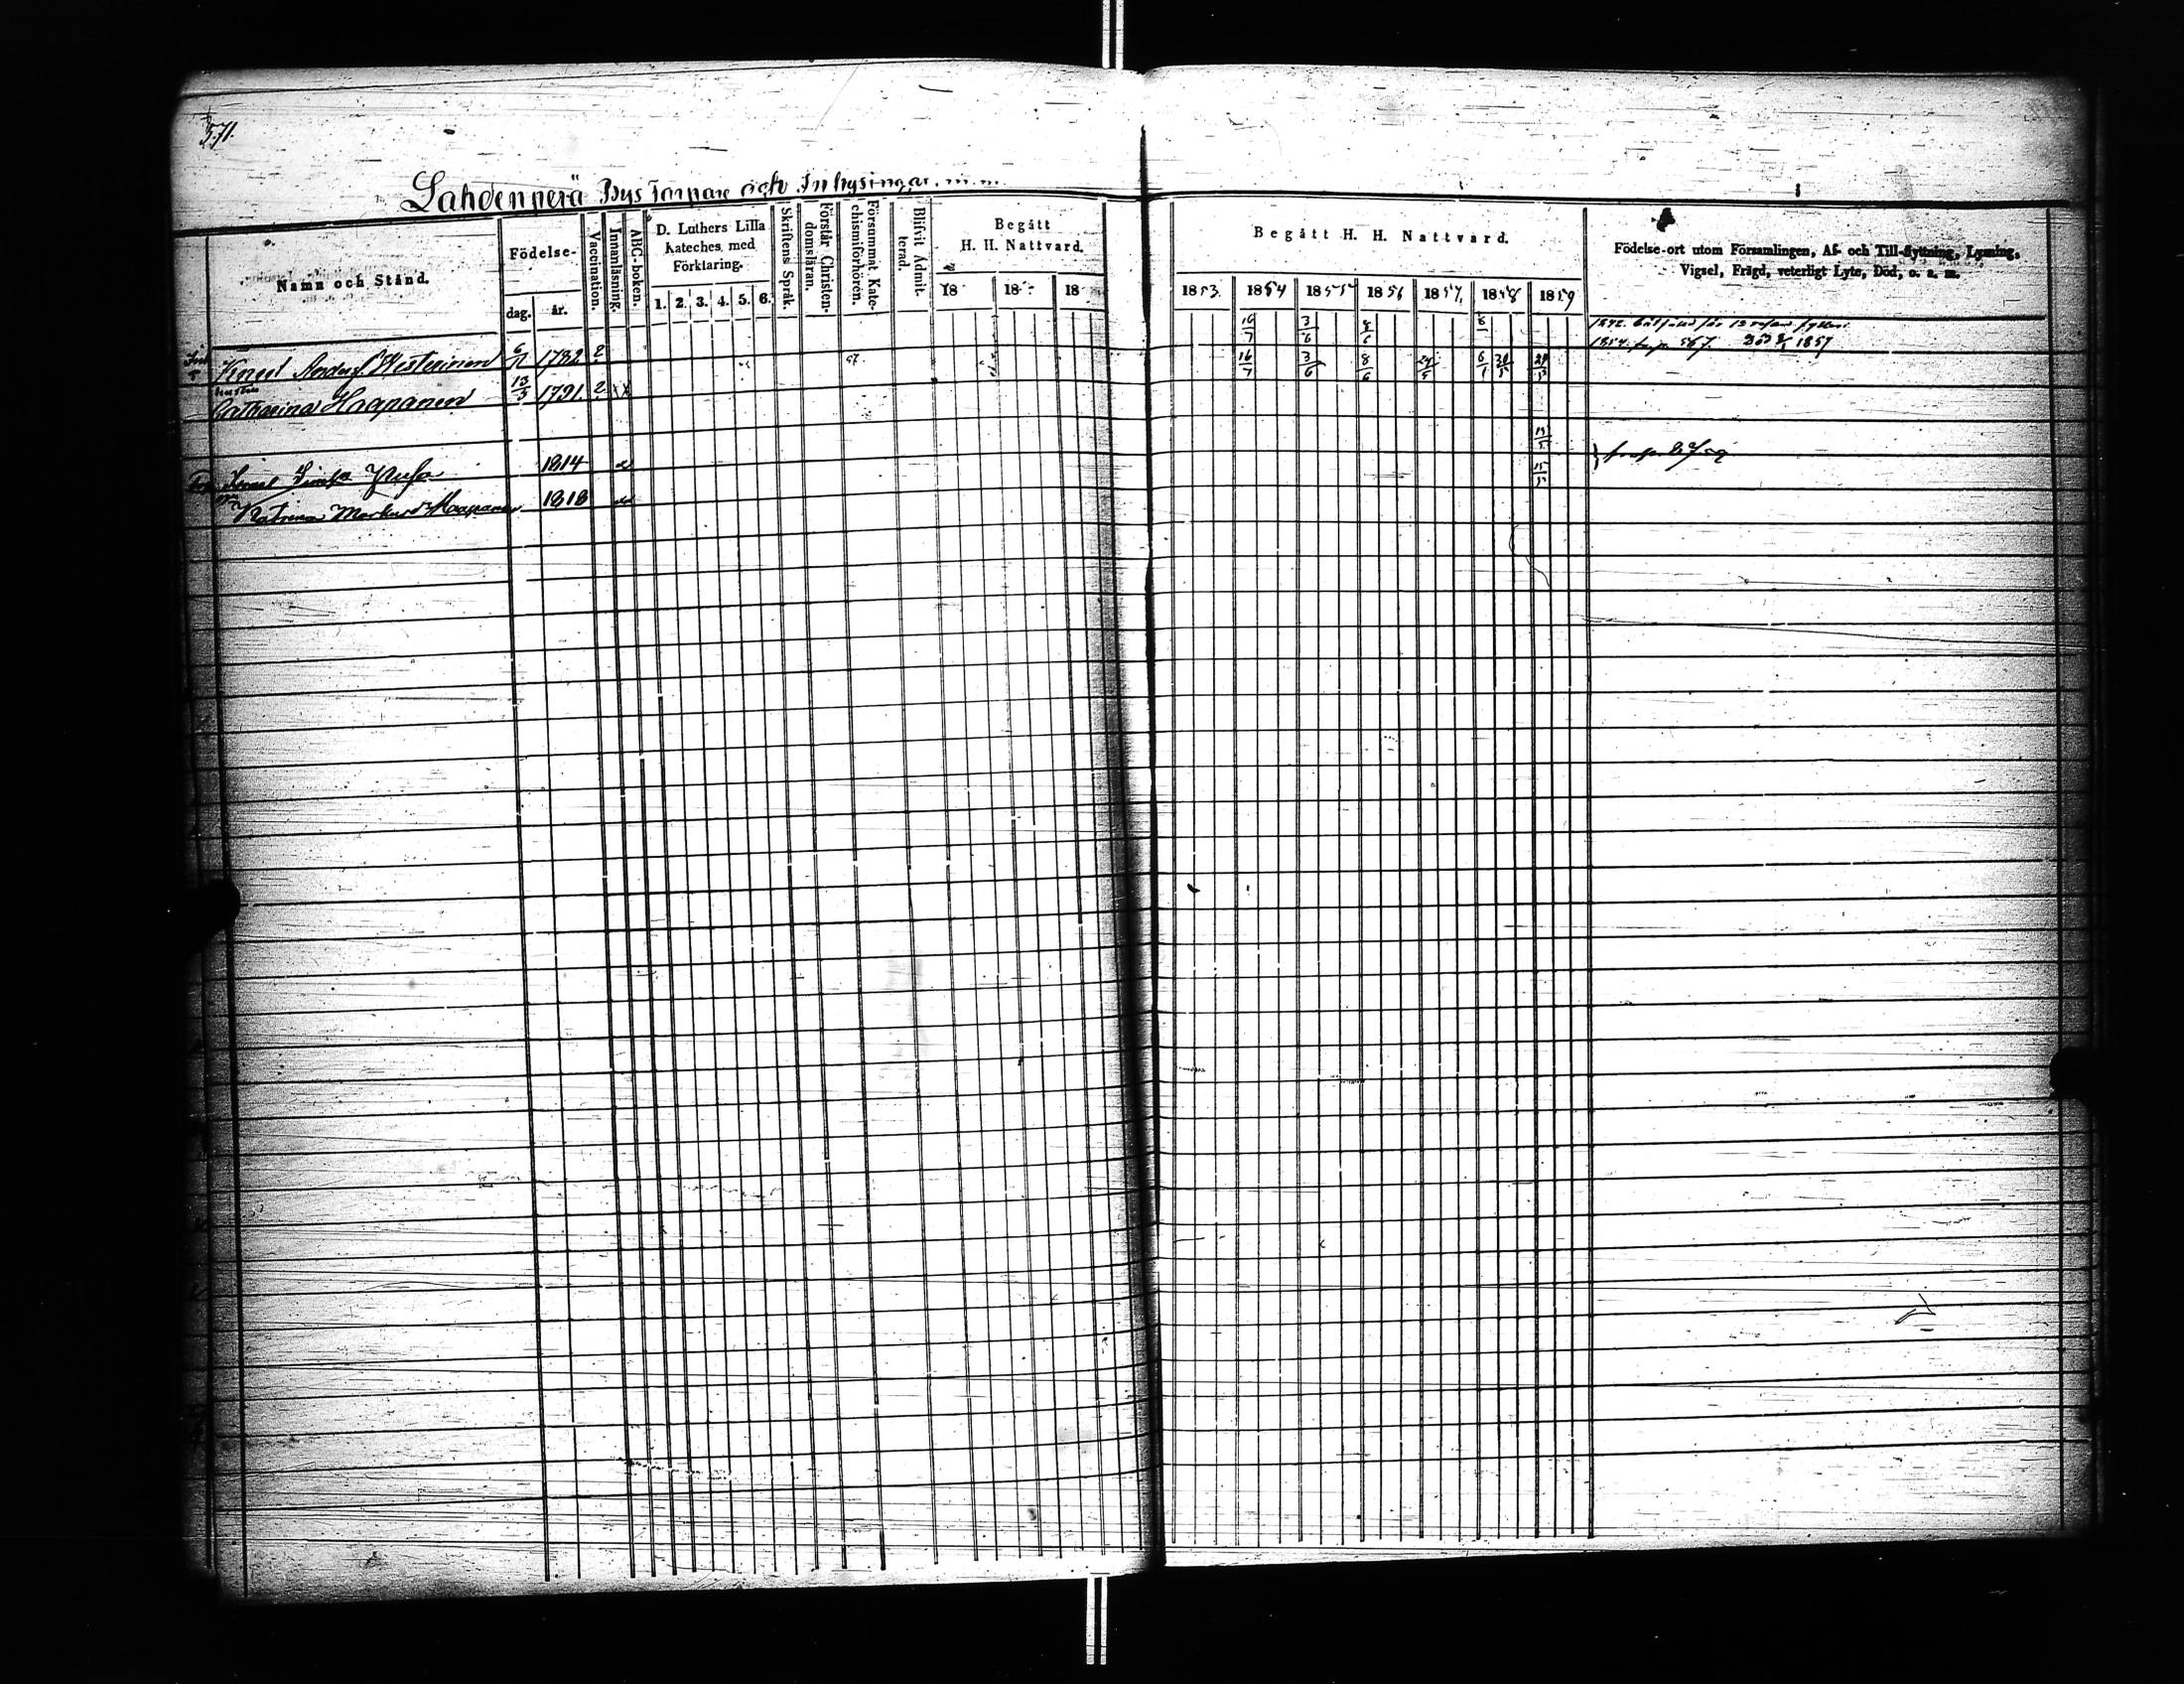 571.
Lahdenperä Bys Torpare och Inhysingar m. m.
Namn och Stånd.
Födelse-
dag. år.
Vaccination.
Innanläsning.
ABC-boken.
D. Luthers Lilla
Kateches. med
Förklaring.
1. 2. 3. 4. 5. 6.
Skriftens Språk.
Förstår Christen-
domsläran.
Försummat Kate-
chismiförhören.
Blifvit Admit-
terad.
Begått
H. H. Nattvard.
18 18 18
Knut Anders Westerinen 6 1782 2 57
hustru
Catharina Haapanen 13/3 1791 2 x x
1814
Katrina Markusd Haapanen 1818
Begått H. H. Nattvard.
1853. 1854 1855 1856 1857. 1858 1859
Födelse-ort utom Församlingen, Af- och Till-flyttning, Lysning,
Vigsel, Frägd, veterligt Lyte, Död, o. s. m.
16/7 3/6 8/6 6
1842. för 12
1854. 567. Död 1857
16/7 3/6 8/6 24/5 6/1 30/5 29/5
15/5
15/5